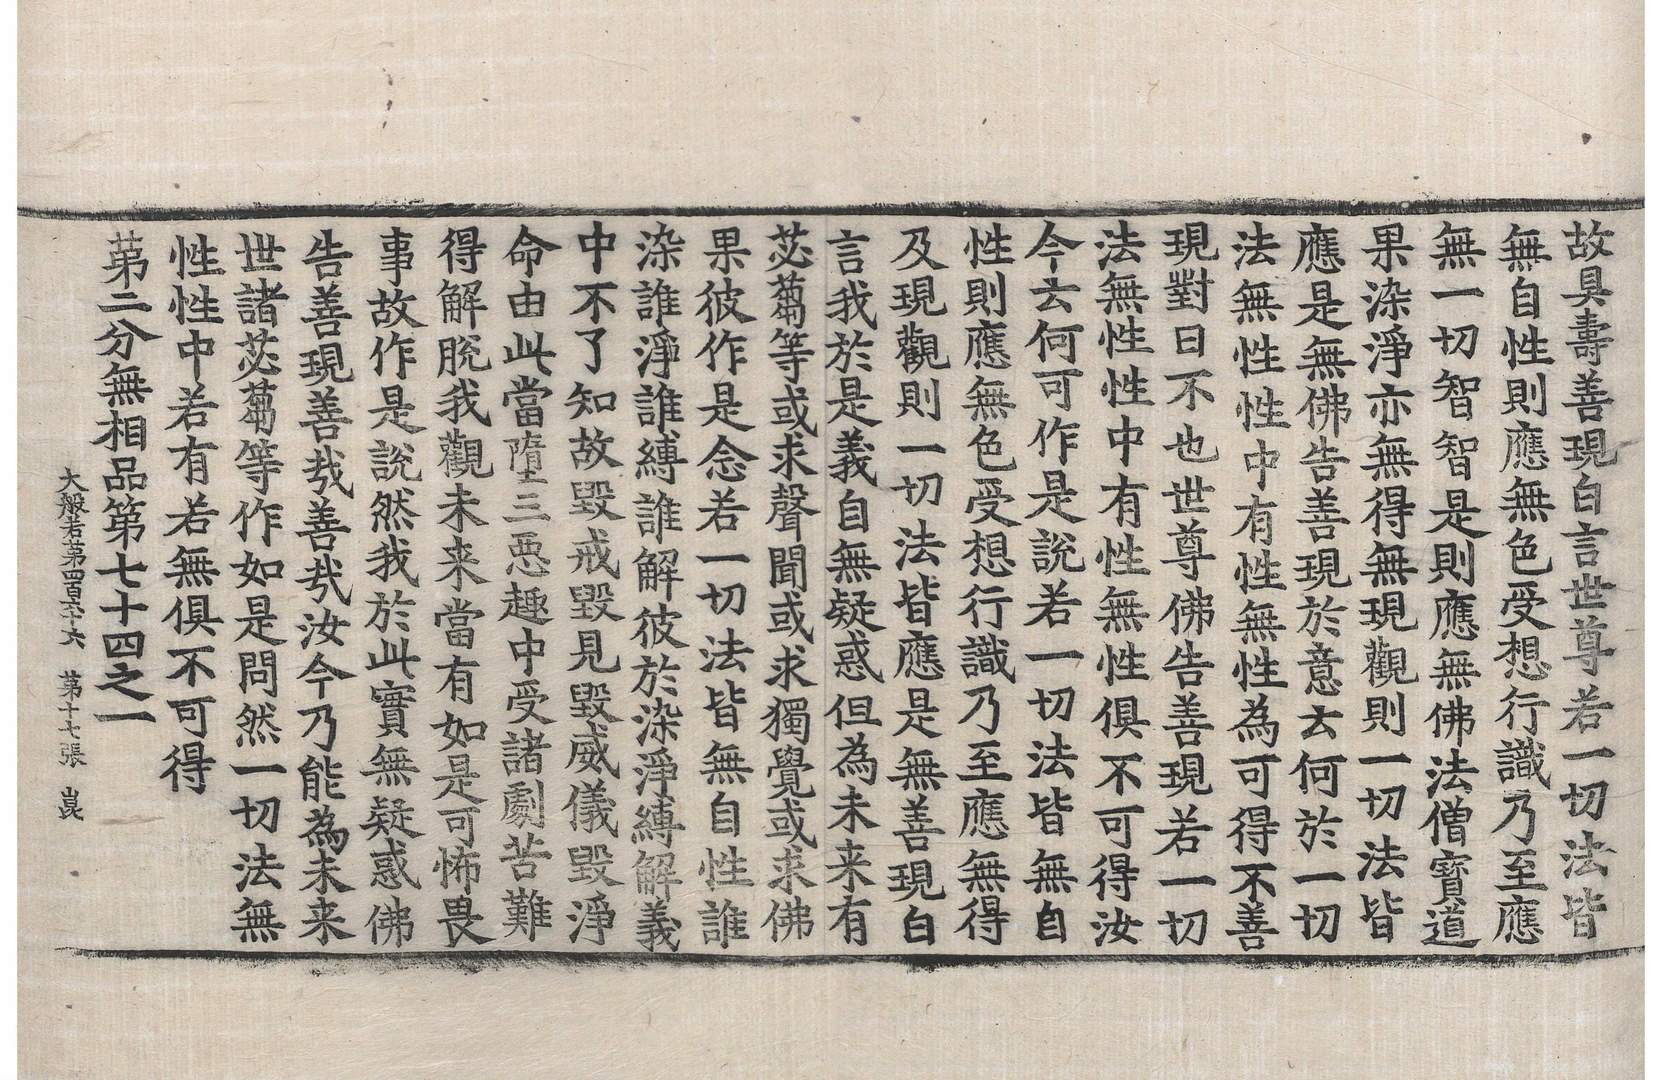 故具壽善現白言世尊若一切法皆
無自性則應無色受想行識乃至應
無一切智智是則應無佛法僧寶道
果染淨亦無得無現觀則一切法皆
應是無佛告善現於意云何於一切
法無性性中有性無性為可得不善
現對曰不也世尊佛告善現若一切
法無性性中有性無性俱不可得汝
今云何可作是說若一切法皆無自
性則應無色受想行識乃至應無得
及現觀則一切法皆應是無善現白
言我於是義自無疑惑但為未来有
苾蒭等或求聲聞或求獨覺或求佛
果彼作是念若一切法皆無自性誰
染誰淨誰縛誰解彼於染淨縛解義
中不了知故毀戒毀見毀威儀毀淨
命由此當墮三惡趣中受諸劇苦難
得解脫我觀未来當有如是可怖畏
事故作是說然我於此實無疑惑佛
告善現善哉善哉汝今乃能為未来
世諸苾蒭等作如是問然一切法無
性性中若有若無俱不可得
第二分無相品第七十四之一
大般若第四百六十六 第十七張 崑